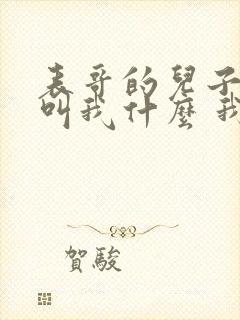 表哥的兒子
叫我什麼 我
賀駿